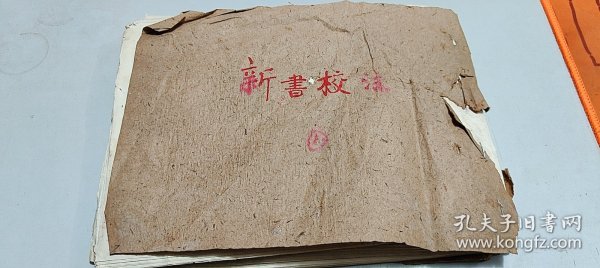 新書校注
孔夫子旧書网
www.kongfz.com